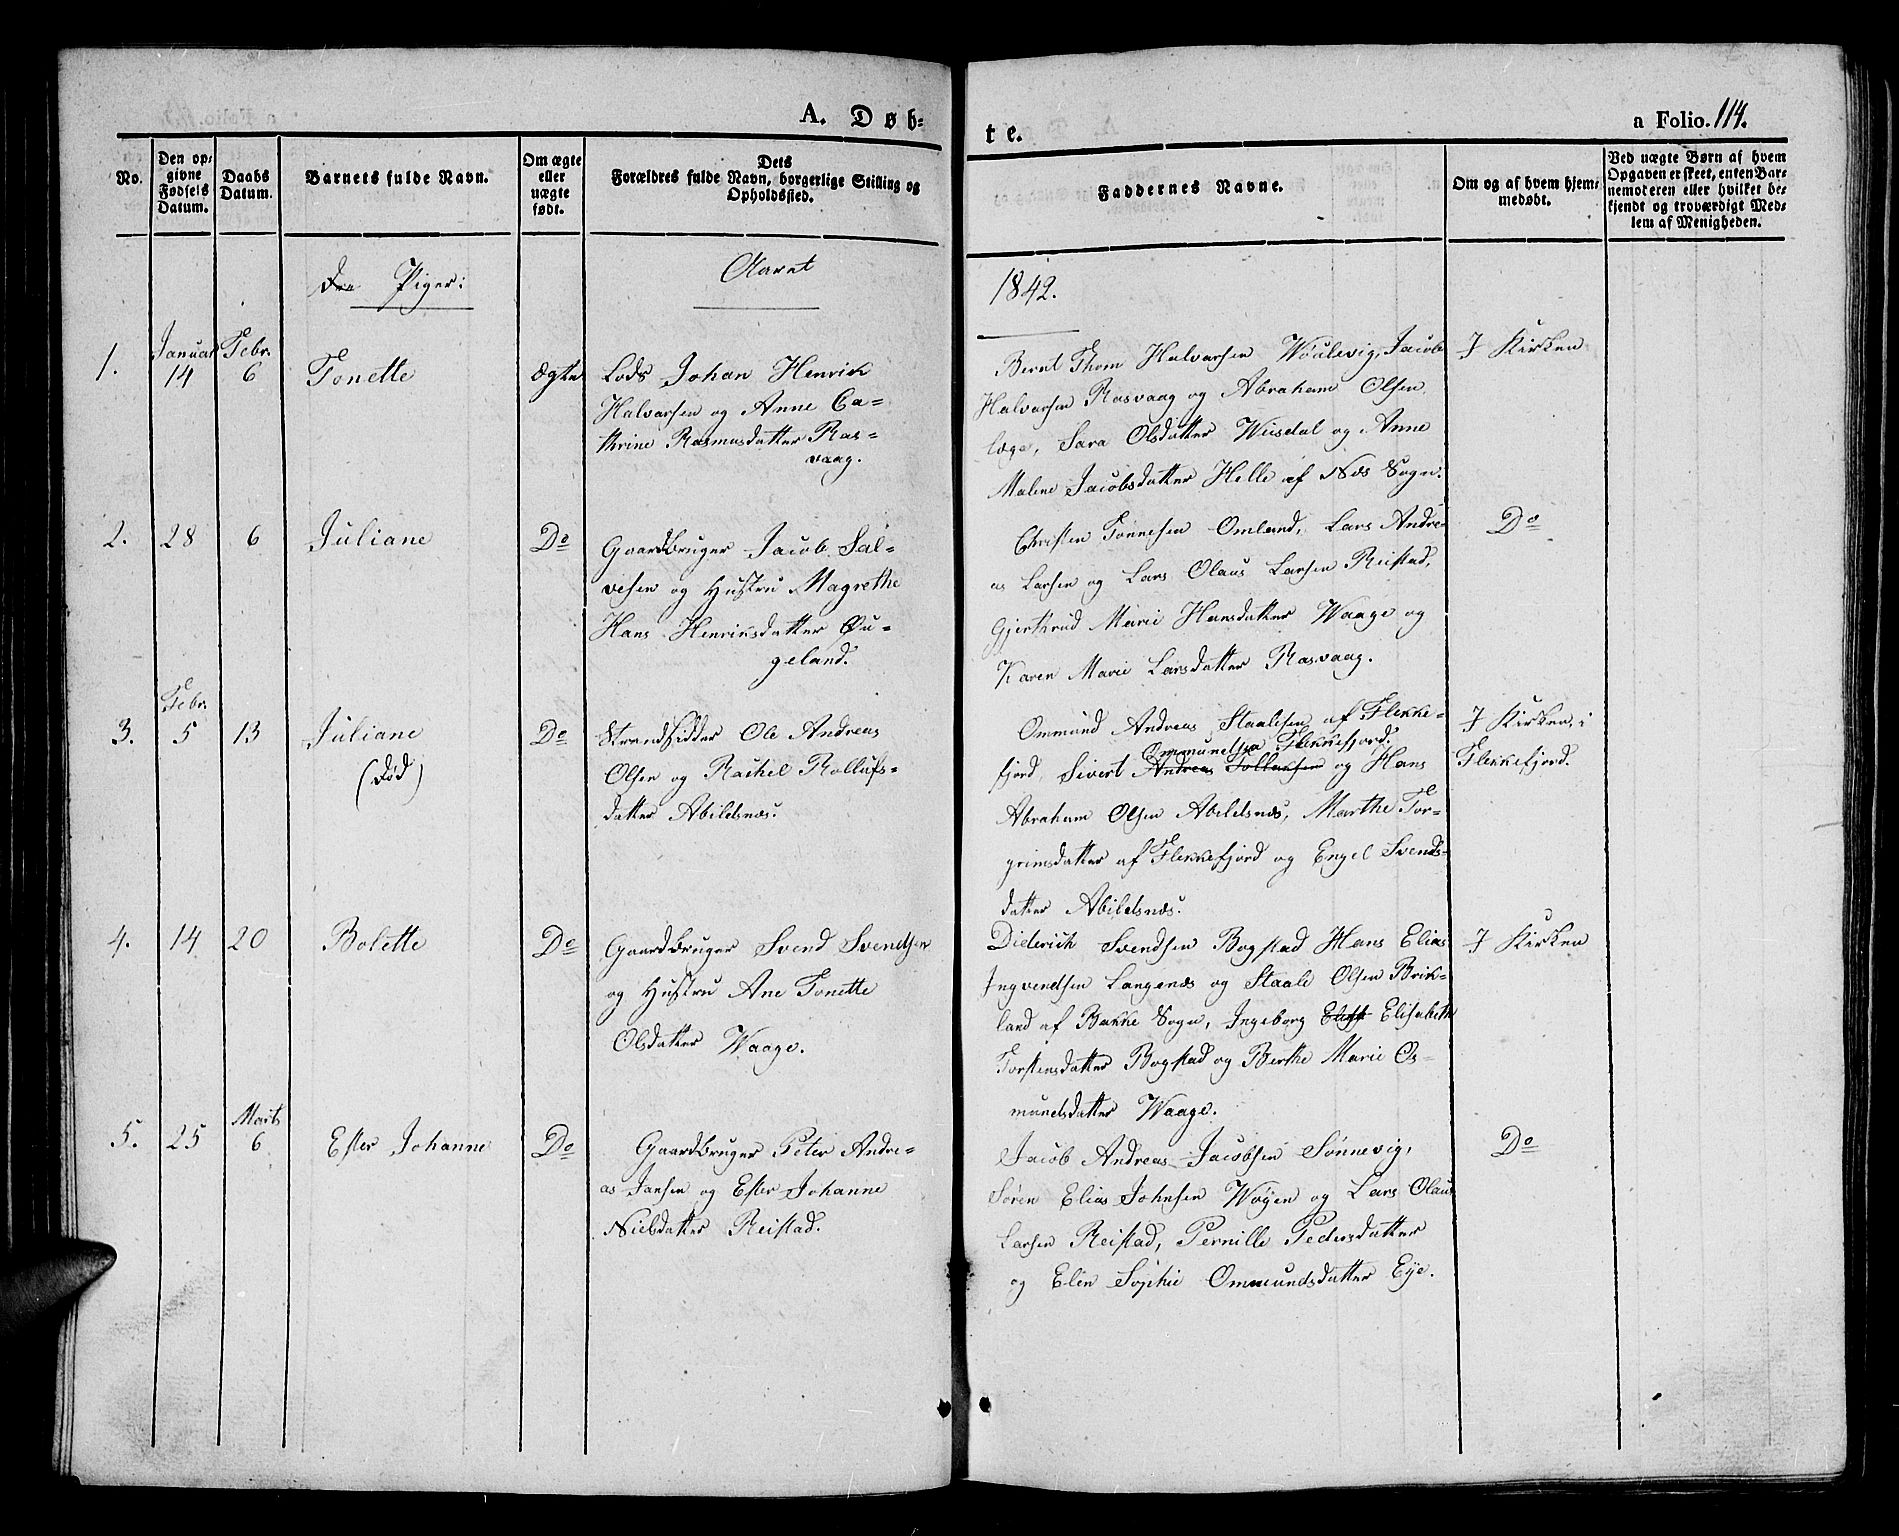 A. Døb-
te.
a Folio. 114.
No.
Den op-
givne
Fødsels
Datum.
Daabs
Datum.
Barnets fulde Navn.
Om ægte
eller
uægte
født.
Dets
Forældres fulde Navn, borgerlige Stilling og
Opholdssted.
Faddernes Navne.
Om og af hvem hjem-
medøbt.
Ved uægte Børn af hvem
Opgaven er skeet, enten Bar-
nemoderen eller hvilket be-
kjendt og troværdigt Med-
lem af Menigheden.
Piger:
Aaret
1842.
1.
Januar
14
Febr.
6
Tonette
Ægte
Lods Johan Henrik
Halvorsen og Anne Ca-
thrine Rasmusdatter Ras-
vaag.
Bernt Thom Halvorsen Jacob
Halvorsen Rasvaag og Abraham Olsen
Sara Olsdatter og Anne
Malene Jacobsdatter Helle af Næs Sogn.
I Kirken
2.
28
6
Juliane
Do
Gaardbruger Jacob Sal-
vesen og Hustru Magrethe
Hans Henriksdatter Øu-
geland.
Christen Tønnesen Omland, Lars Andre-
as Larsen og Lars Olaus Larsen Reistad,
Gjerthrud Marie Hansdatter Waage og
Karen Marie Larsdatter Rasvaag.
Do
3.
Febr.
5
13
Juliane
(død)
Do
Strandsidder Ole Andreas
Olsen og Rachel Rollufs-
datter Abildsnæs.
Ommund Andreas Staalesen af Flekke-
Ommundsen Flekkefjord.
fjord, Sivert Andreas Tollaksen og Hans
Abraham Olsen Abildsnæs, Marthe Tor-
grimsdatter af Flekkefjord og Engel Svends-
datter Abildsnæs.
I Kirken i
Flekkefjord.
4.
14
20
Bolette
Do
Gaardbruger Svend Svendsen
og Hustru Ane Tonette
Olsdatter Waage.
Diderich Svendsen Bogstad Hans Elias
Ingvendsen Langenæs og Staale Olsen Birk-
land af Bakke Sogn, Ingeborg Elisabeth
Torstensdatter Bogstad og Berthe Marie Os-
mundsdatter Waage.
I Kirken
5.
25
Marts
6
Ester Johanne
Do
Gaardbruger Peter Andre-
as Jansen og Ester Johanne
Nielsdatter Reistad.
Jacob Andreas Jacobsen Sønnevig,
Søren Elias Johnsen Wøyen og Lars Olaus
Larsen Reistad, Pernille Pedersdatter
og Elen Sophie Ommundsdatter Eye.
Do